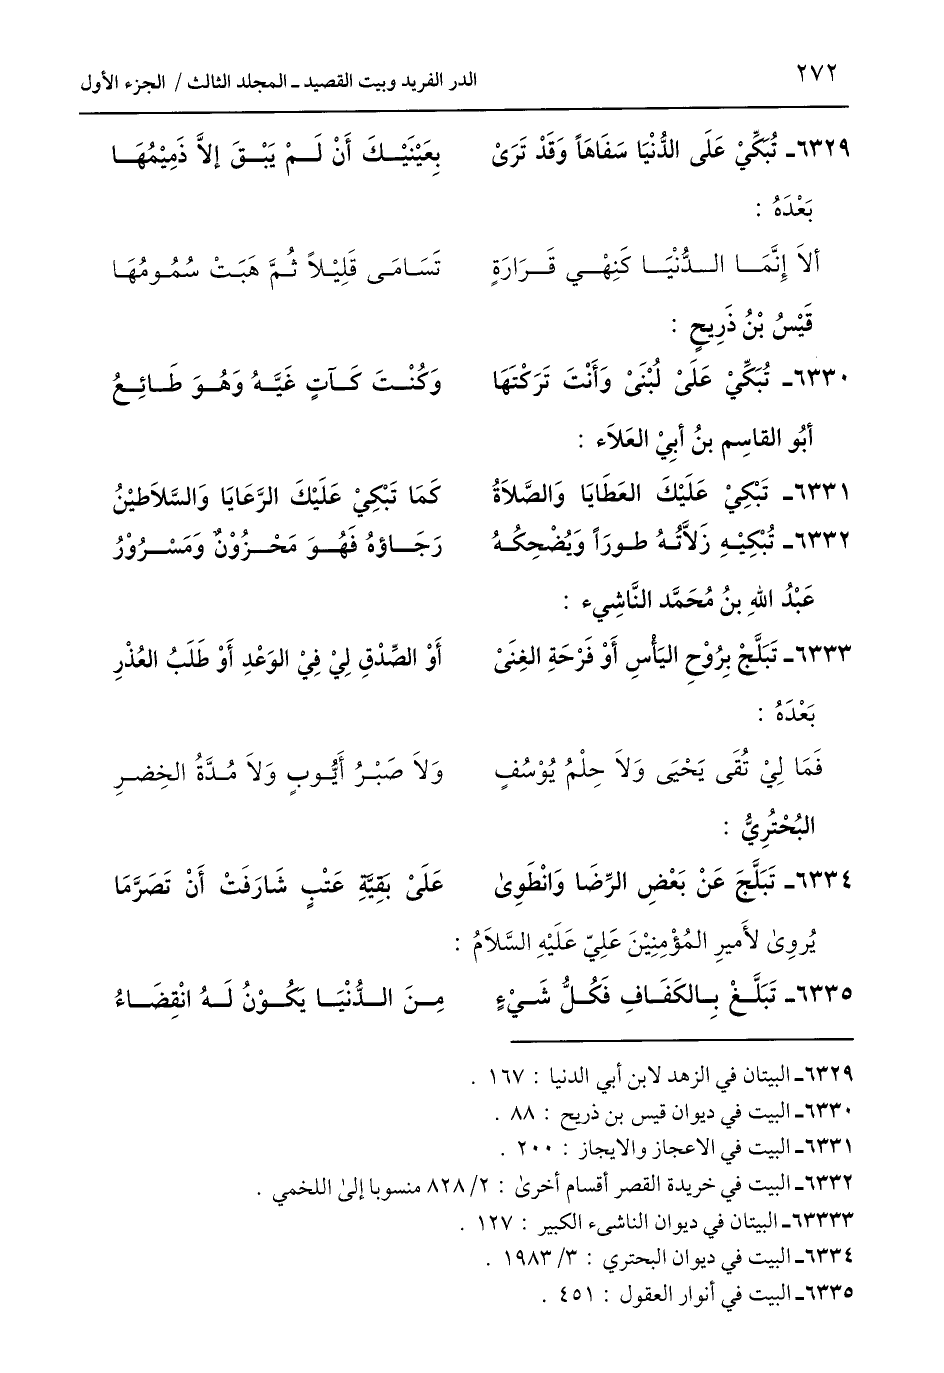 ٢٧٢ الدر الفريد وبيت القصيد ـ المجلد الثالث / الجزء الأول
٦٣٢٩ـ تُبَكِّيْ عَلَى الدُّنْيَا سَفَاهَاً وَقَدْ تَرَىْ بِعَيْنَيْـكَ أَنْ لَـمْ يَبْـقَ إلاَّ ذَمِيْمُهَـا
بَعْدَهُ :
ألاَ إِنَّمَـا الـدُّنْيَـا كَنِهْـي قَـرَارَةٍ تَسَامَـى قَلِيْـلاً ثُـمَّ هَبَتْ سُمُومُهَا
قَيْسُ بْنُ ذَرِيحٍ :
٦٣٣٠ـ تُبَكِّيْ عَلَىْ لُبْنَىْ وَأَنْتَ تَرَكْتَهَا وَكُنْـتَ كَـآتٍ غَيَّـهُ وَهُـوَ طَـائِـعُ
أبُو القاسِم بنُ أبِيْ العَلاَء :
٦٣٣١ـ تَبْكِيْ عَلَيْكَ العَطَايَا وَالصَّلاَةُ كَمَا تَبْكِيْ عَلَيْكَ الرَّعَايا وَالسَّلاَطيْنُ
٦٣٣٢ـ تُبْكِيْـهِ زَلاَّتُـهُ طـوراً وَيُضْحِكُـهُ رَجَـاؤهُ فَهُـوَ مَحْـزُوْنٌ وَمَسْـرُوْرُ
عَبْدُ اللهِ بنُ مُحَمَّد النَّاشِيء :
٦٣٣٣ـ تَبَلَّجْ بِرُوْحِ اليَأْسِ أَوْ فَرْحَةِ الغِنَىْ أَوْ الصِّدْقِ لِيْ فِيْ الوَعْدِ أَوْ طَلَبُ العُذْرِ
بَعْدَهُ :
فَمَا لِيْ تُقَى يَحْيَى وَلاَ حِلْمُ يُوْسُفٍ وَلاَ صَبْـرُ أَيُّـوبٍ وَلاَ مُـدَّةُ الخِضـرِ
البُحْتُرِيُّ :
٦٣٣٤ـ تَبَلَّجَ عَنْ بَعْضِ الرِّضَا وَانْطَوِىْ عَلَىْ بَقِيَّةِ عَتْبٍ شَارَفَتْ أَنْ تَصَرَّمَا
يُروِىْ لأَميرِ المُؤْمِنِيْنَ عَلِيّ عَلَيْهِ السَّلاَمُ :
٦٣٣٥ـ تَبَلَّـغْ بِـالكَفَـافِ فَكُـلُّ شَـيْءٍ مِـنَ الـدُّنْيَـا يَكُـوْنُ لَـهُ انْقِضَـاءُ
٦٣٢٩ـ البيتان في الزهد لابن أبي الدنيا : ١٦٧ .
٦٣٣٠ـ البيت في ديوان قيس بن ذريح : ٨٨ .
٦٣٣١ـ البيت في الاعجاز والايجاز : ٢٠٠ .
٦٣٣٢ـ البيت في خريدة القصر أقسام أخرىٰ : ٢/ ٨٢٨ منسوبا إلىٰ اللخمي .
٦٣٣٣٣ـ البيتان في ديوان الناشىء الكبير : ١٢٧ .
٦٣٣٤ـ البيت في ديوان البحتري : ٣/ ١٩٨٣ .
٦٣٣٥ـ البيت في أنوار العقول : ٤٥١ .